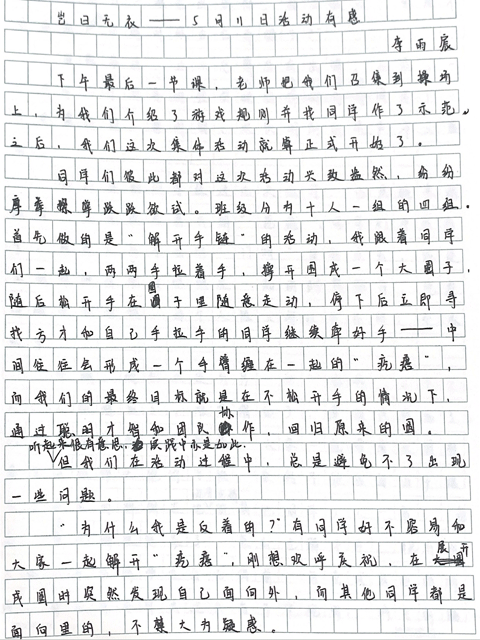 岂曰无衣——5月11日活动有感
李雨宸
下午最后一节课,老师把我们召集到操场
上,为我们介绍了游戏规则并找同学作了示范。
之后,我们这次集体活动就算正式开始了。
同学们彼此都对这次活动兴致盎然,纷纷
摩拳擦掌跃跃欲试。班级分为十人一组的四组。
首先做的是“解开手链”的活动,我跟着同学
们一起,两两手拉着手,撑开围成一个大圈子,
随后松开手在圈子里随意走动,停下后立即寻
找方才和自己手拉手的同学继续牵好手——中
间往往会形成一个手臂缠在一起的“疙瘩”,
而我们的最终目标就是在不松开手的情况下,
通过聪明才智和团队协作,回归原来的圆。
听起来很有意思,实践中亦是如此。
但我们在活动过程中,总是避免不了出现
一些问题。
“为什么我是反着的?”有同学好不容易和
大家一起解开“疙瘩”,刚想欢呼庆祝,在展开
成圆时突然发现自己面向外,而其他同学都是
面向里的,不禁大为疑惑。